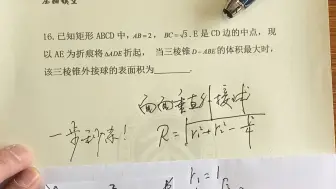 16. 已知矩形 ABCD 中，AB=2，BC=√3. E 是 CD 边的中点，现
以 AE 为折痕将 △ADE 折起，当三棱锥 D-ABE 的体积最大时，
该三棱锥外接球的表面积为______.
面面垂直外接球
一步秒杀！
R=√(r₁²+r₂²-
r₁=1